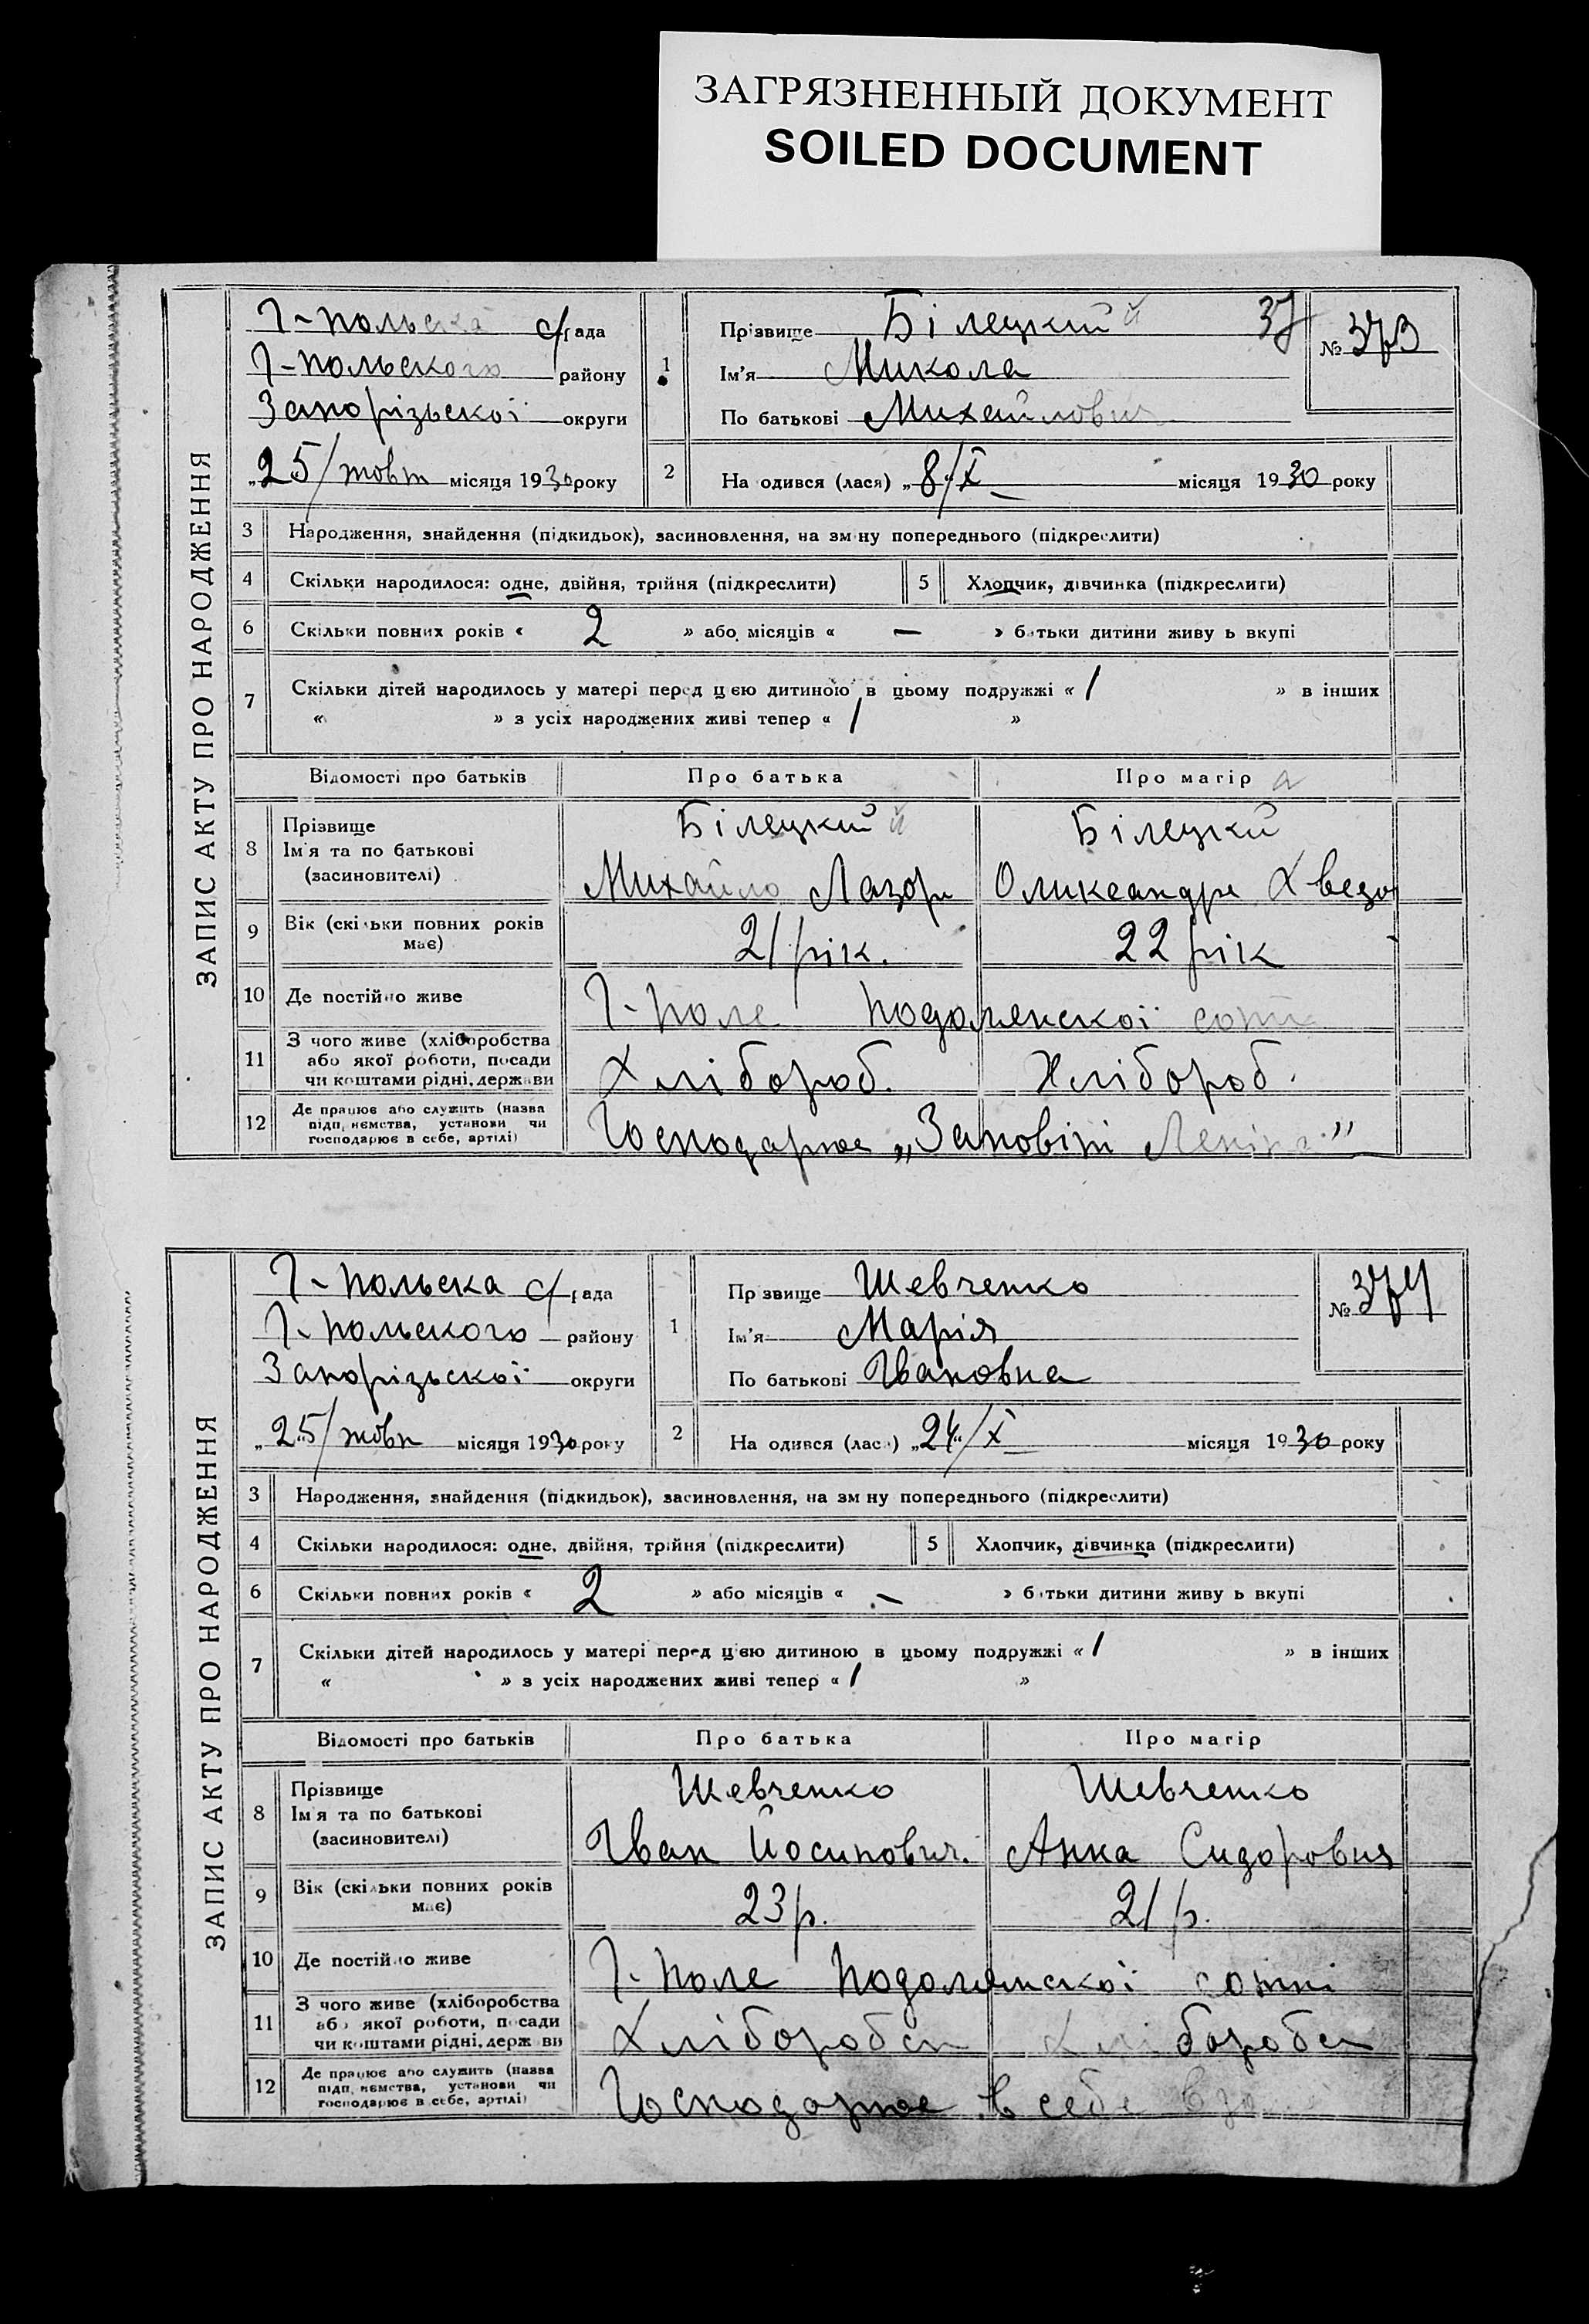 ЗАГРЯЗНЕННЫЙ ДОКУМЕНТ
SOILED DOCUMENT
ЗАПИС АКТУ ПРО НАРОДЖЕННЯ
Г-польська с/рада
Г-польского району
Запорізьскої округи
„25/жовт місяця 1930 року
1
Прізвище Білецкий 37
Ім'я Микола
По батькові Михайлович
№ 373
2 На одився (лася) „8/X місяця 1930 року
3 Народження, знайдення (підкидьок), засиновлення, на зм ну попереднього (підкреслити)
4 Скільки народилося: одне, двійня, трійня (підкреслити) 5 Хлопчик, дівчинка (підкреслити)
6 Скільки повних років « 2 » або місяців « — » батьки дитини живу ь вкупі
7 Скільки дітей народилось у матері перед цією дитиною в цьому подружжі « 1 » в інших
« » з усіх народжених живі тепер « 1 »
Відомості про батьків Про батька Про матір
8 Прізвище Білецкий Білецкий
Ім'я та по батькові
(засиновителі) Михайло Лазор Оликсандра Хведо
9 Вік (скільки повних років має) 21 рік. 22 рік
10 Де постійно живе Г-Поле Подолянскої сотні
11 З чого живе (хліборобства або якої роботи, посади чи коштами рідні, держави Хлібороб. Хлібороб.
12 Де працює або служить (назва підп, иємства, установи чи господарює в себе, артілі) Господарює „Заповіт Леніна"
ЗАПИС АКТУ ПРО НАРОДЖЕННЯ
Г-польска с/рада
Г-польского району
Запорізьскої округи
„25/жовт місяця 1930 року
1
Пр звище Шевченко
Ім'я Марія
По батькові Івановна
№ 374
2 На одився (лася) „24"/X місяця 1930 року
3 Народження, знайдення (підкидьок), засиновлення, на зм ну попереднього (підкреслити)
4 Скільки народилося: одне, двійня, трійня (підкреслити) 5 Хлопчик, дівчинка (підкреслити)
6 Скільки повних років « 2 » або місяців « — » батьки дитини живу ь вкупі
7 Скільки дітей народилось у матері перед цією дитиною в цьому подружжі « 1 » в інших
« » з усіх народжених живі тепер « 1 »
Відомості про батьків Про батька Про матір
8 Прізвище Шевченко Шевченко
Ім'я та по батькові
(засиновителі) Іван Йосипович. Анна Сидоровня
9 Вік (скільки повних років має) 23 р. 21 р.
10 Де постійно живе Г-Поле Подолямскої сотні
11 З чого живе (хліборобства або якої роботи, посади чи коштами рідні, держави Хліборобст Хліборобст
12 Де працює або служить (назва підп, иємства, установи чи господарює в себе, артілі) Господарює в себе